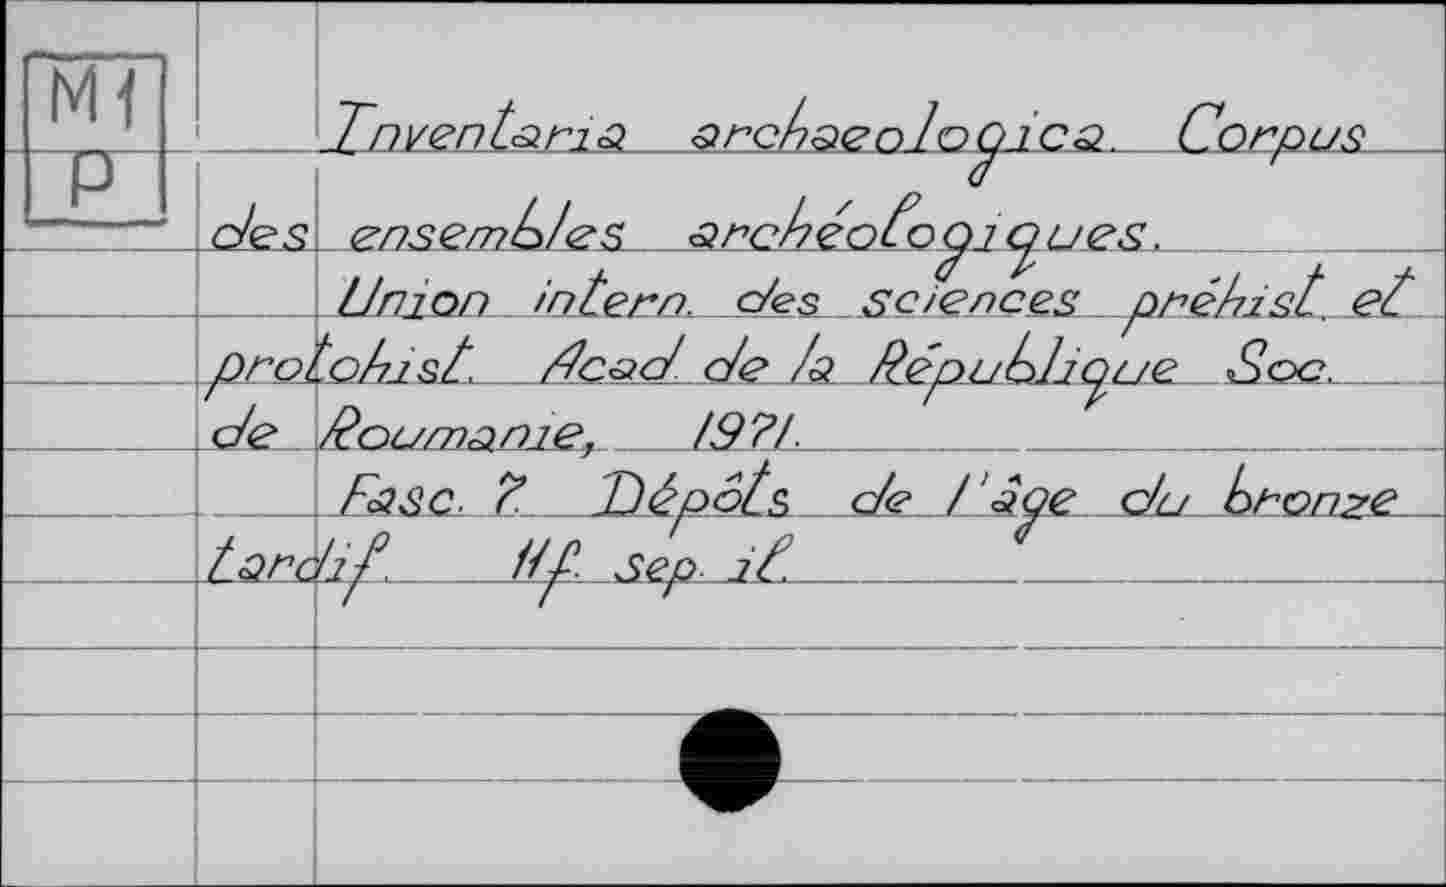 М1
Р
Inventaria archaeologica. Corpus
des ensembles archéologiques.
Union intern. des sciences préhist. et
protohist. Acad. de la République Soc.
de Roumanie, 1971.
Fasc. 7. Dépôts de l'âge du bronze
tardif. 11 f. sep. il.